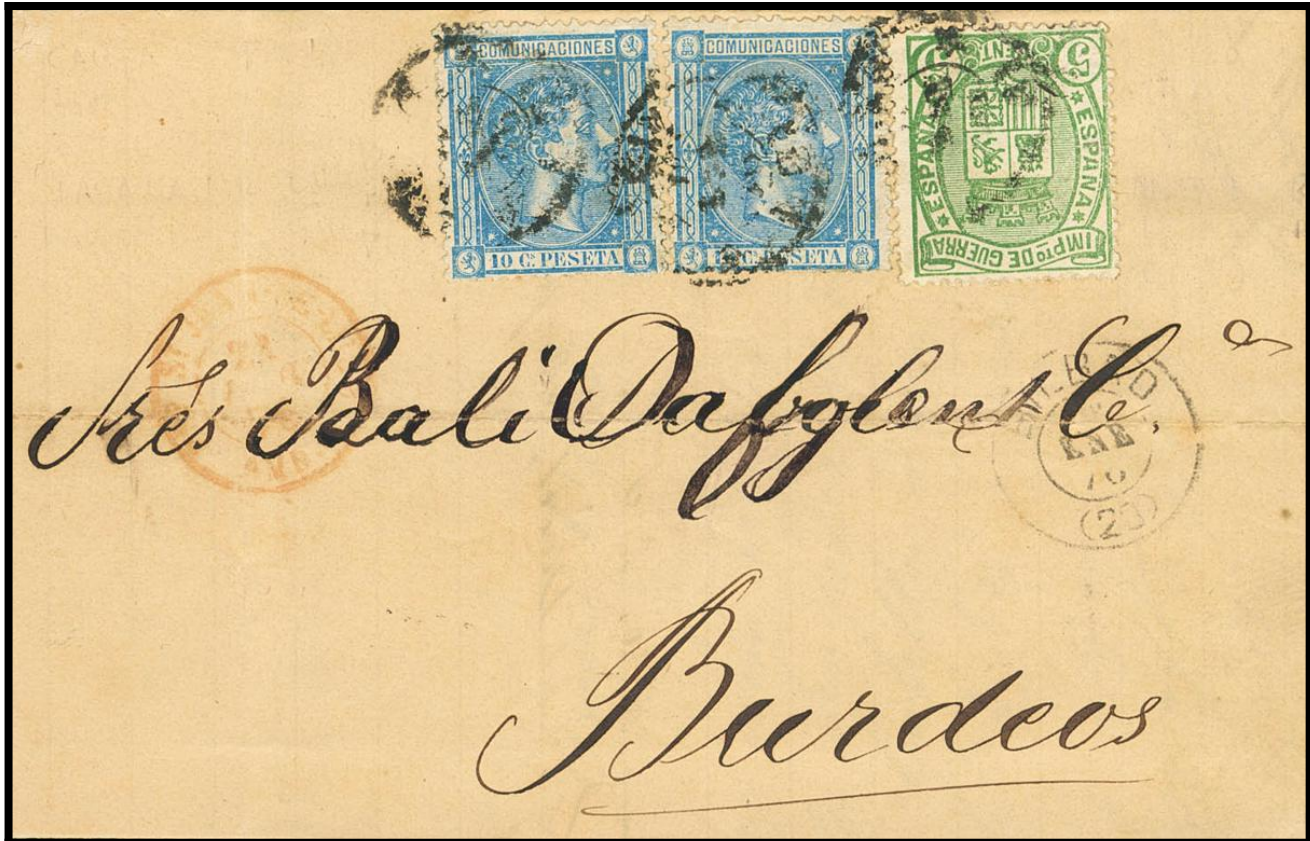 COMUNICACIONES
10 C. PESETA
COMUNICACIONES
C. PESETA
5 CENT 5
★ ESPAÑA ★
★ ESPAÑA ★
IMPTO DE GUERRA
Srès Bali C.ª
BILBAO
ENE
76
(23)
Burdeos